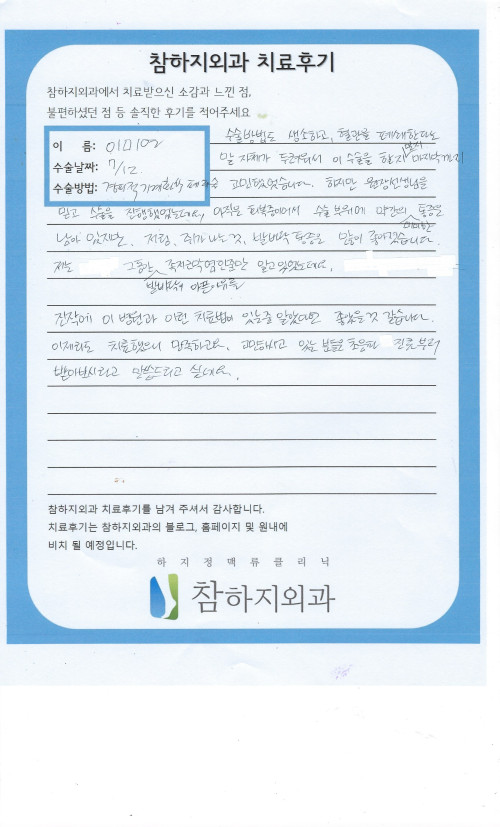 참하지외과 치료후기
참하지외과에서 치료받으신 소감과 느낀 점,
불편하셨던 점 등 솔직한 후기를 적어주세요
수술방법도 생소하고, 혈관를 폐쇄한다는
이 름:
말 자체가 두려워서 이 수술을 할지 말지 마지막까지
수술날짜: 7/12.
수술방법: 경피적 기계화학 폐쇄술 고민했었습니다. 하지만 원장선생님을
믿고 수술을 진행했었는데요, 아직은 회복중이어서 수술 부위에 약간의 통증은
남아 있지만, 저림, 쥐가 나는 것, 발바닥 통증은 많이 좋아졌습니다.
저는 그동안 족저근막염인줄만 알고 있었는데요,
발바닥이 아픈 이유를
진작에 이 병원과 이런 치료법이 있는줄 알았다면 좋았을것 같습니다.
이제라도 치료했으니 만족하고요, 고민하시고 있는 분들은 초음파 진료부터
받아보시라고 말씀드리고 싶네요.
참하지외과 치료후기를 남겨 주셔서 감사합니다.
치료후기는 참하지외과의 블로그, 홈페이지 및 원내에
비치 될 예정입니다.
하지정맥류클리닉
참하지외과